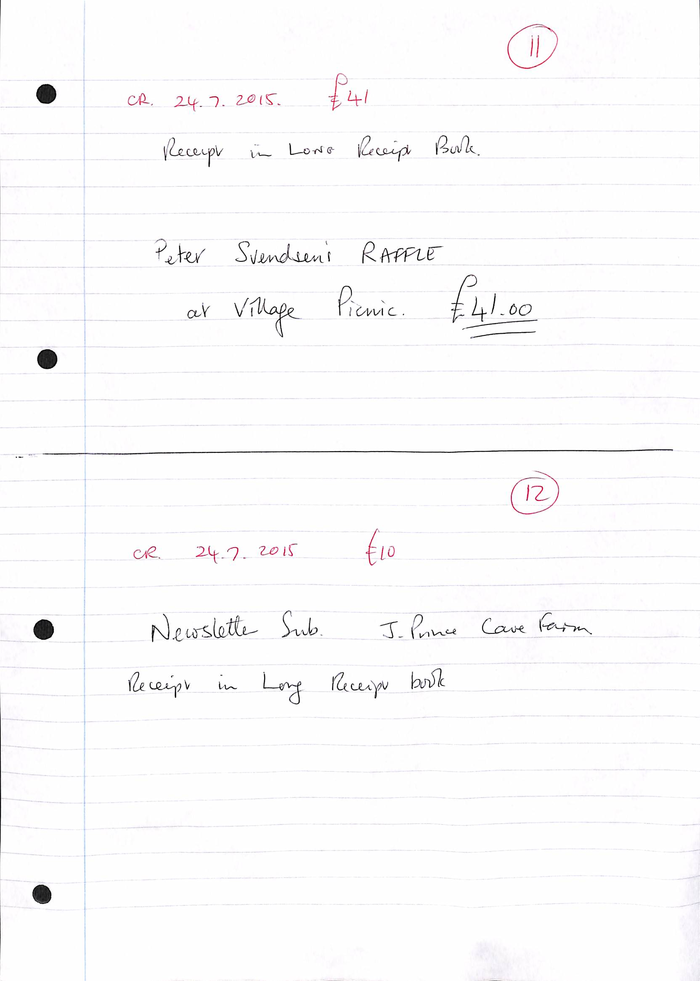 11
CR. 24.7.2015. £41
Receipt in Long Receipt Book.
Peter Svendsen's RAFFLE
at Village Picnic. £41.00
12
CR. 24.7.2015 £10
Newslette Sub. J. Prince Cave Farm
Receipt in Long Receipt book